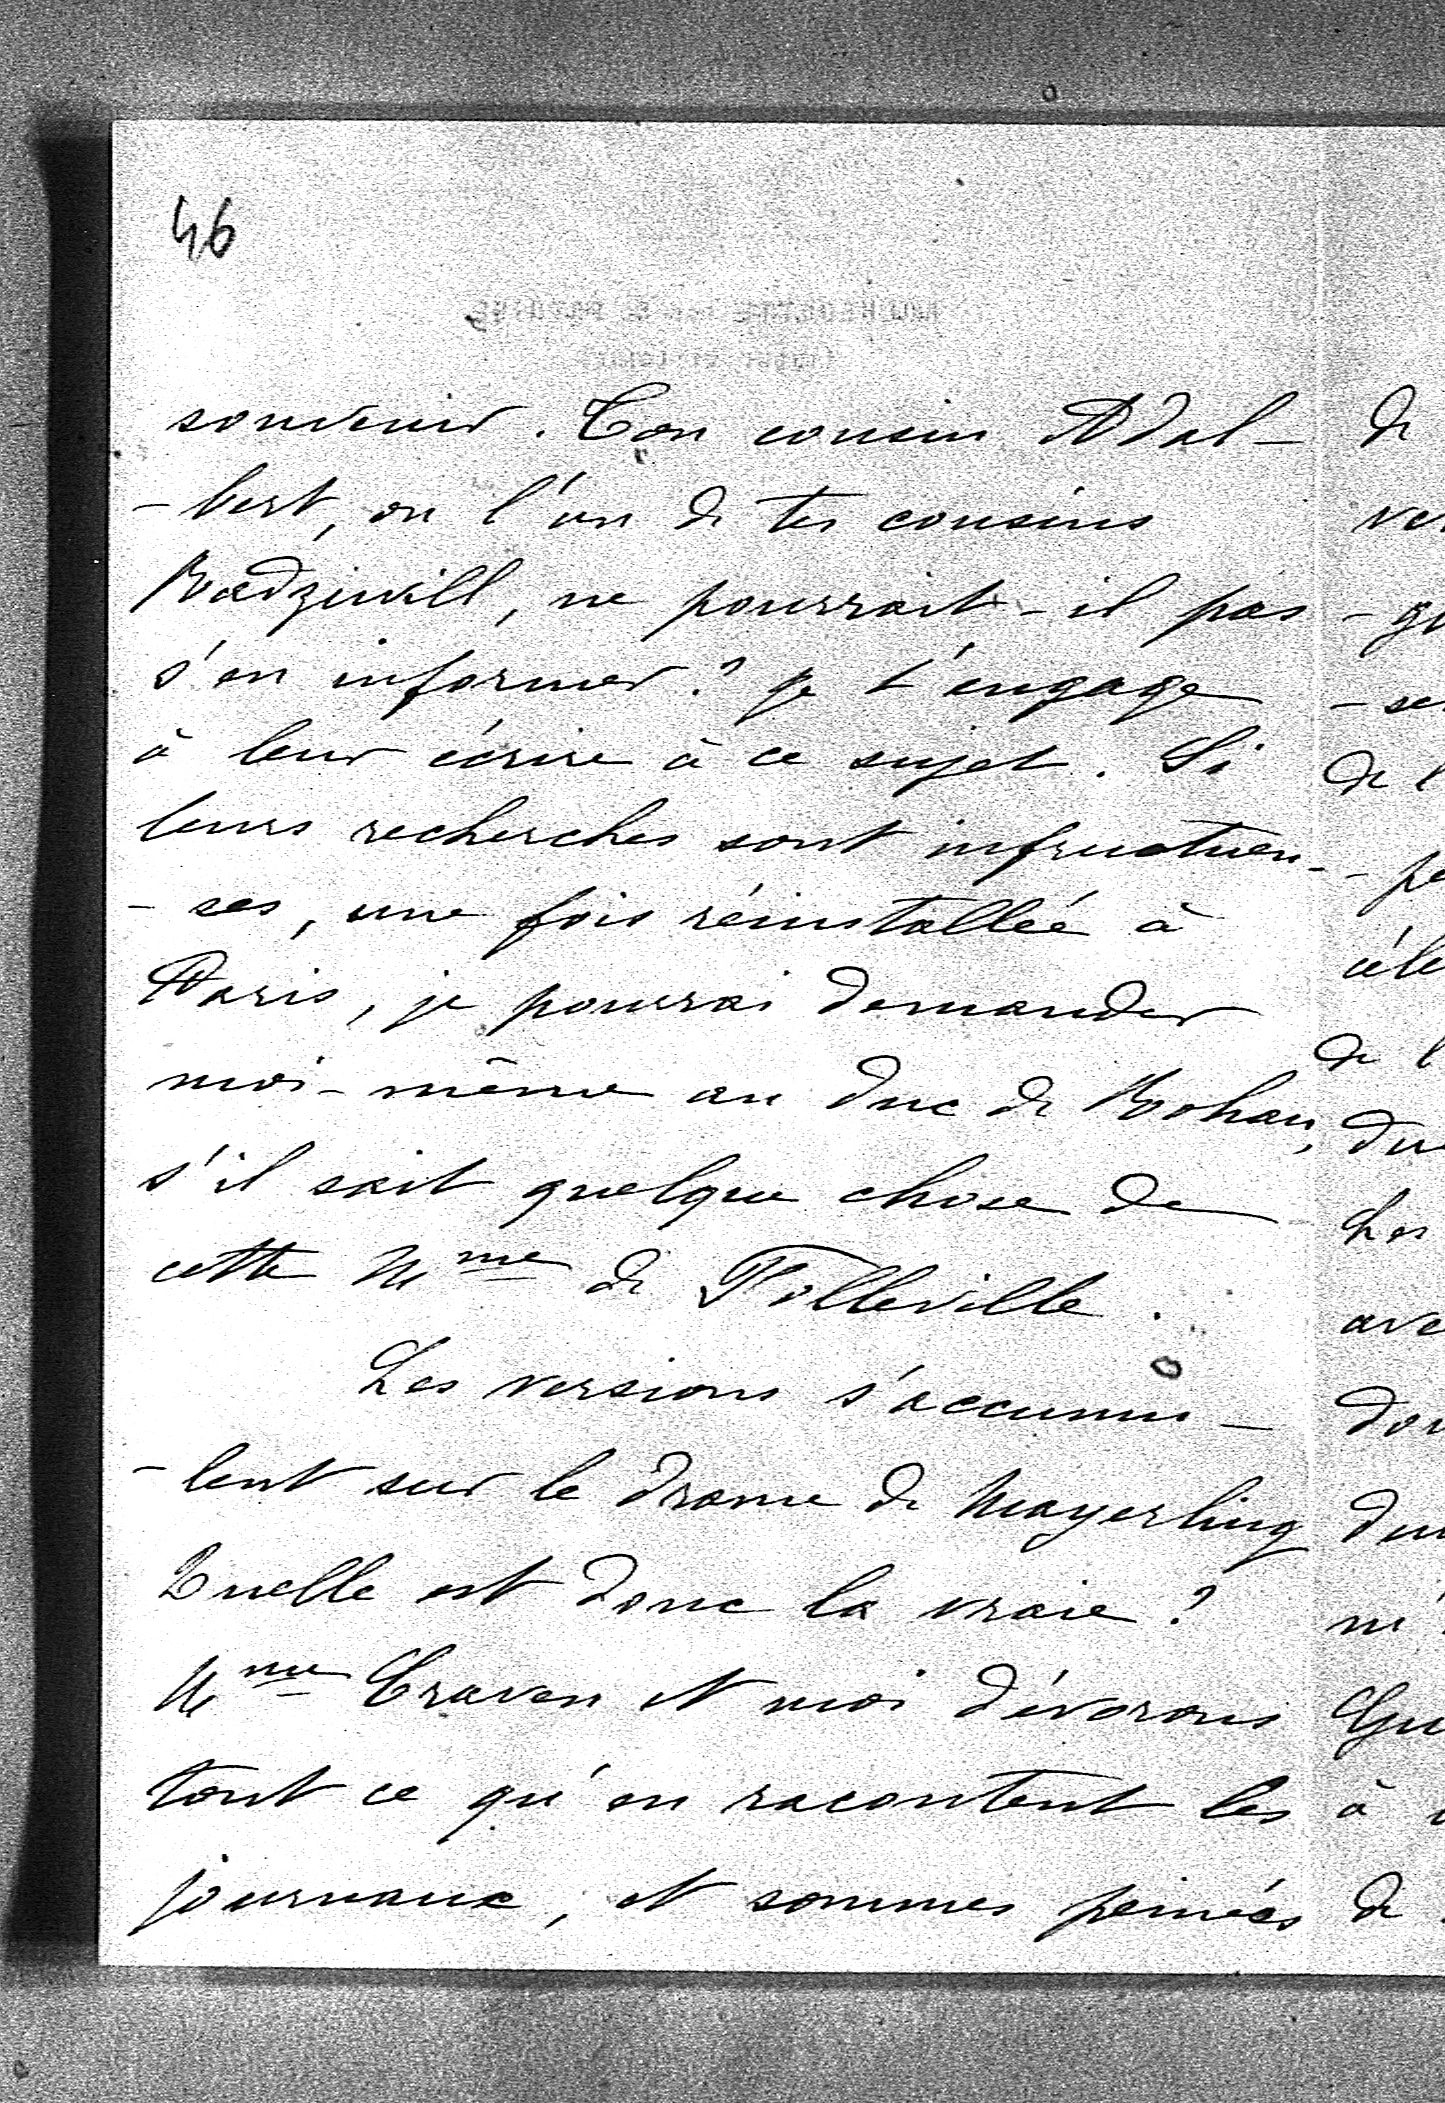 46
souvenir. Ton cousin Adal-
-bert, ou l'un de tes cousins
Radziwill, ne pourrait-il pas
s'en informer? je t'engage
à leur écrire à ce sujet. Si
leurs recherches sont infructueu-
-ses, une fois réinstallée à
Paris, je pourrai demander
moi-même au duc de Rohan,
s'il sait quelque chose de
cette Mme de Folleville.
Les versions s'accumu-
-lent sur le drame de Mayerling
Quelle est donc la vraie?
Mme Craven et moi dévorons
tout ce qu'en racontent les
journaux, et sommes peinées
de
de l
de l
Les
à
de